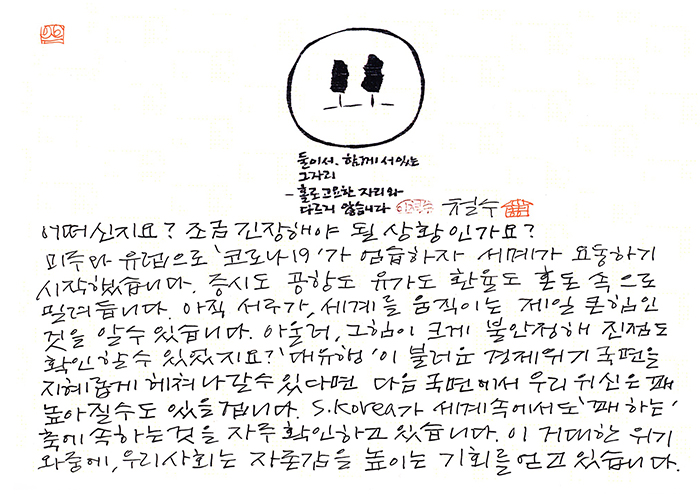 둘이서. 함께 서 있는
그 자리
- 홀로 고요한 자리와
다르지 않습니다
철수
어떠신지요? 조금 긴장해야 될 상황인가요?
미주와 유럽으로 '코로나19'가 엄습하자 세계가 요동하기
시작했습니다. 증시도 공항도 유가도 환율도 혼돈 속으로
밀려듭니다. 아직 서구가, 세계를 움직이는 제일 큰 힘인
것을 알 수 있습니다. 아울러, 그 힘이 크게 불안정해 진 점도
확인할 수 있었지요? '대유행'이 불러온 경제위기 국면을
지혜롭게 헤쳐나갈 수 있다면 다음 국면에서 우리 위신은 꽤
높아질 수도 있을 겁니다. S.Korea가 세계 속에서도 '꽤 하는'
축에 속하는 것을 자주 확인하고 있습니다. 이 거대한 위기
와중에, 우리 사회는 자존감을 높이는 기회를 얻고 있습니다.